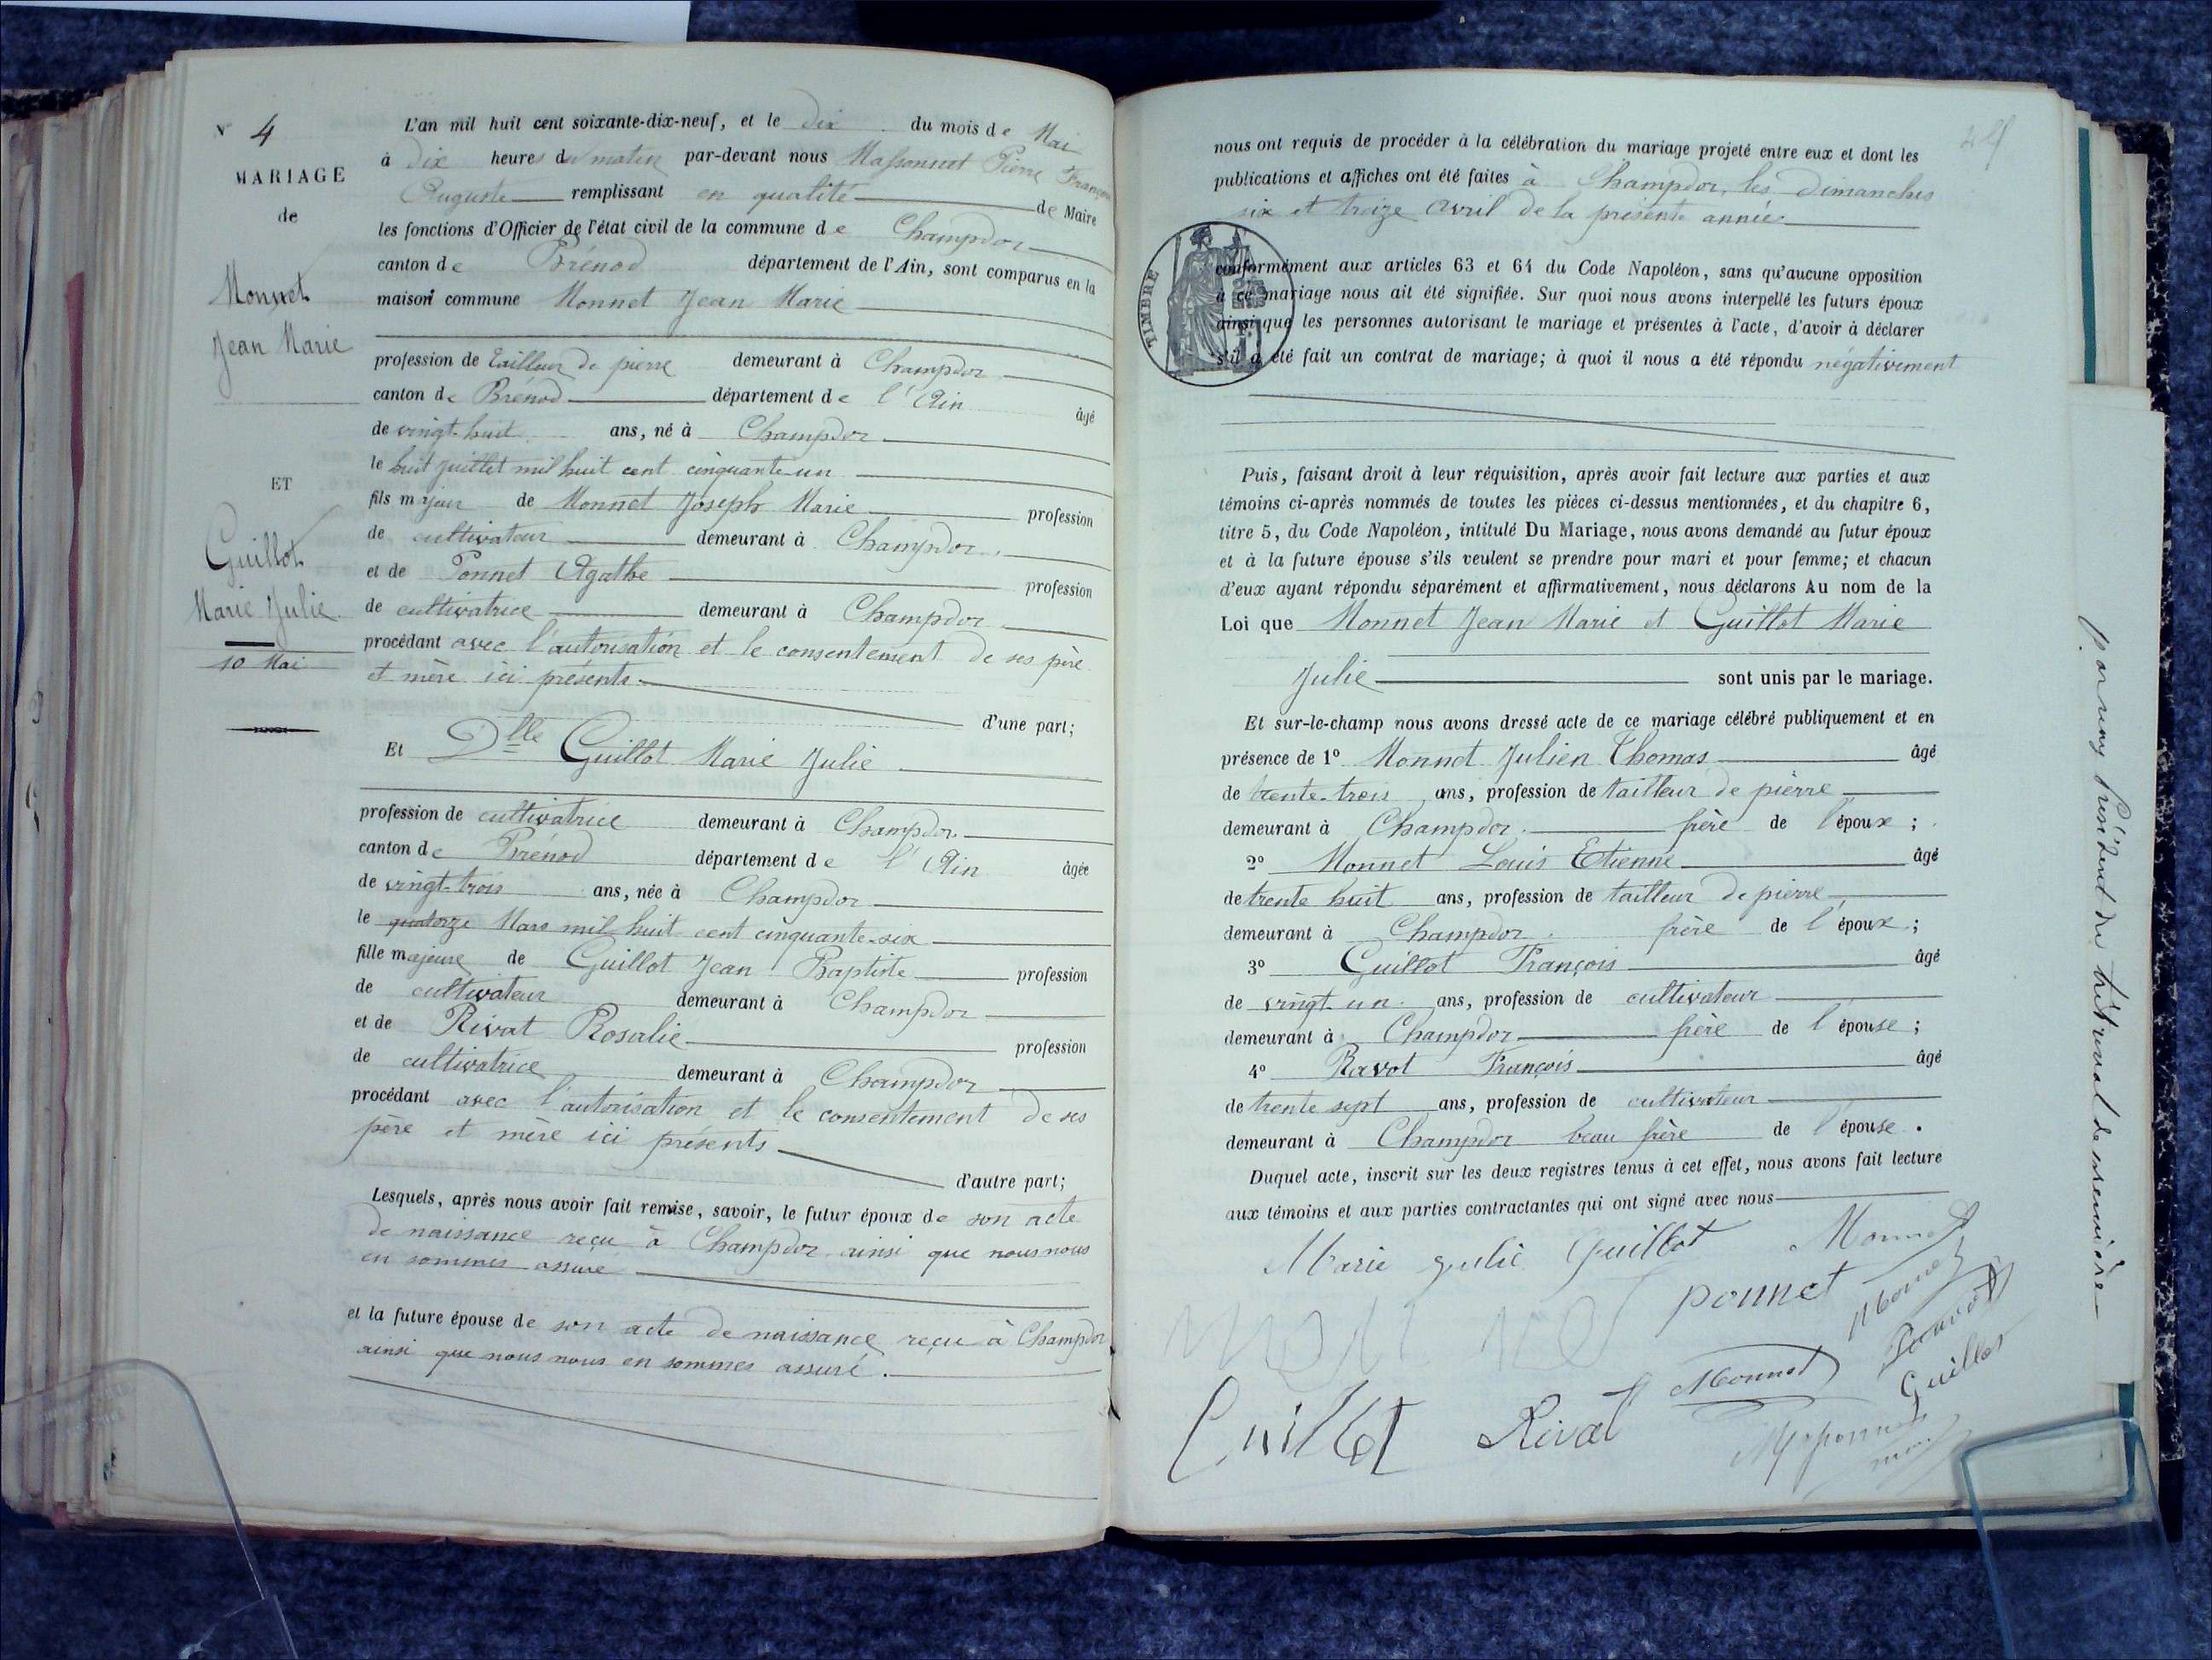 N° 4
MARIAGE
de
Monnet
Jean Marie
ET
Guillot
Marie Julie
10 Mai
L'an mil huit cent soixante-dix-neuf, et le dix du mois de Mai
à dix heures du matin par-devant nous Massonnet Pierre François
Auguste remplissant en qualité de Maire
les fonctions d'Officier de l'état civil de la commune de Champdor
canton de Brénod département de l'Ain, sont comparus en la
maison commune Monnet Jean Marie
profession de tailleur de pierre demeurant à Champdor
canton de Brénod département de l'Ain âgé
de vingt-huit ans, né à Champdor
le huit juillet mil huit cent cinquante un
fils majeur de Monnet Joseph Marie profession
de cultivateur demeurant à Champdor
et de Ponnet Agathe profession
de cultivatrice demeurant à Champdor
procédant avec l'autorisation et le consentement de ses père
et mère ici présents
d'une part;
Et Dlle Guillot Marie Julie
profession de cultivatrice demeurant à Champdor
canton de Brénod département de l'Ain âgée
de vingt-trois ans, née à Champdor
le quatorze Mars mil huit cent cinquante-six
fille majeure de Guillot Jean Baptiste profession
de cultivateur demeurant à Champdor
et de Rivat Rosalie profession
de cultivatrice demeurant à Champdor
procédant avec l'autorisation et le consentement de ses
père et mère ici présents
d'autre part;
Lesquels, après nous avoir fait remise, savoir, le futur époux de son acte
de naissance reçu à Champdor ainsi que nous nous
en sommes assuré
et la future épouse de son acte de naissance reçu à Champdor
ainsi que nous nous en sommes assuré.
nous ont requis de procéder à la célébration du mariage projeté entre eux et dont les
publications et affiches ont été faites à Champdor, les dimanches
six et treize avril de la présente année
TIMBRE
conformément aux articles 63 et 64 du Code Napoléon, sans qu'aucune opposition
à ce mariage nous ait été signifiée. Sur quoi nous avons interpellé les futurs époux
ainsi que les personnes autorisant le mariage et présentes à l'acte, d'avoir à déclarer
s'il a été fait un contrat de mariage; à quoi il nous a été répondu négativement
Puis, faisant droit à leur réquisition, après avoir fait lecture aux parties et aux
témoins ci-après nommés de toutes les pièces ci-dessus mentionnées, et du chapitre 6,
titre 5, du Code Napoléon, intitulé Du Mariage, nous avons demandé au futur époux
et à la future épouse s'ils veulent se prendre pour mari et pour femme; et chacun
d'eux ayant répondu séparément et affirmativement, nous déclarons Au nom de la
Loi que Monnet Jean Marie et Guillot Marie
Julie sont unis par le mariage.
Et sur-le-champ nous avons dressé acte de ce mariage célébré publiquement et en
présence de 1° Monnet Julien Thomas âgé
de trente-trois ans, profession de tailleur de pierre
demeurant à Champdor frère de l'époux;
2° Monnet Louis Etienne âgé
de trente huit ans, profession de tailleur de pierre
demeurant à Champdor frère de l'époux;
3° Guillot François âgé
de vingt-un ans, profession de cultivateur
demeurant à Champdor frère de l'épouse;
4° Ravot François âgé
de trente sept ans, profession de cultivateur
demeurant à Champdor beau frère de l'épouse.
Duquel acte, inscrit sur les deux registres tenus à cet effet, nous avons fait lecture
aux témoins et aux parties contractantes qui ont signé avec nous
Marie julie Guillot Monnet
ponnet Monnet
Guillot
Monnet
Guillot Rivat
par nous Président du tribunal de